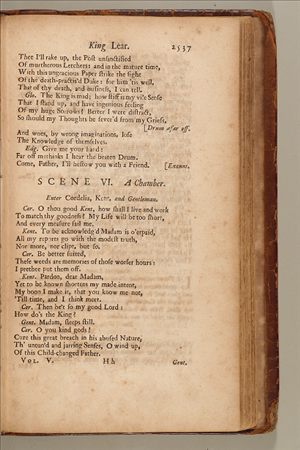 King Lear. 2537
Thee I'll rake up, the Post unsanctified
Of murtherous Letchers: and in the mature time,
With this ungracious Paper strike the sight
Of the death-practis'd Duke: for him 'tis well,
That of thy death, and business, I can tell.
Glo. The King is mad; how stiff is my vile Sense
That I stand up, and have ingenious feeling
Of my huge Sorrows! Better I were distract,
So should my Thoughts be sever'd from my Griefs,
[Drum afar off.
And woes, by wrong imaginations, lose
The Knowledge of themselves.
Edg. Give me your hand:
Far off methinks I hear the beaten Drum.
Come, Father, I'll bestow you with a Friend. [Exeunt.
SCENE VI. A Chamber.
Enter Cordelia, Kent, and Gentleman.
Cor. O thou good Kent, how shall I live and work
To match thy goodness? My Life will be too short,
And every measure fail me.
Kent. To be acknowledg'd Madam is o'erpaid,
All my reports go with the modest truth,
Nor more, nor clipt, but so.
Cor. Be better suited,
These weeds are memories of those worser hours:
I prethee put them off.
Kent. Pardon, dear Madam,
Yet to be known shortens my made intent,
My boon I make it, that you know me not,
'Till time, and I think meet.
Cor. Then be't so my good Lord:
How do's the King?
Gent. Madam, sleeps still.
Cor. O you kind gods!
Cure this great breach in his abused Nature,
Th' untun'd and jarring Senses, O wind up,
Of this Child-changed Father.
VOL. V. Hh Gent.